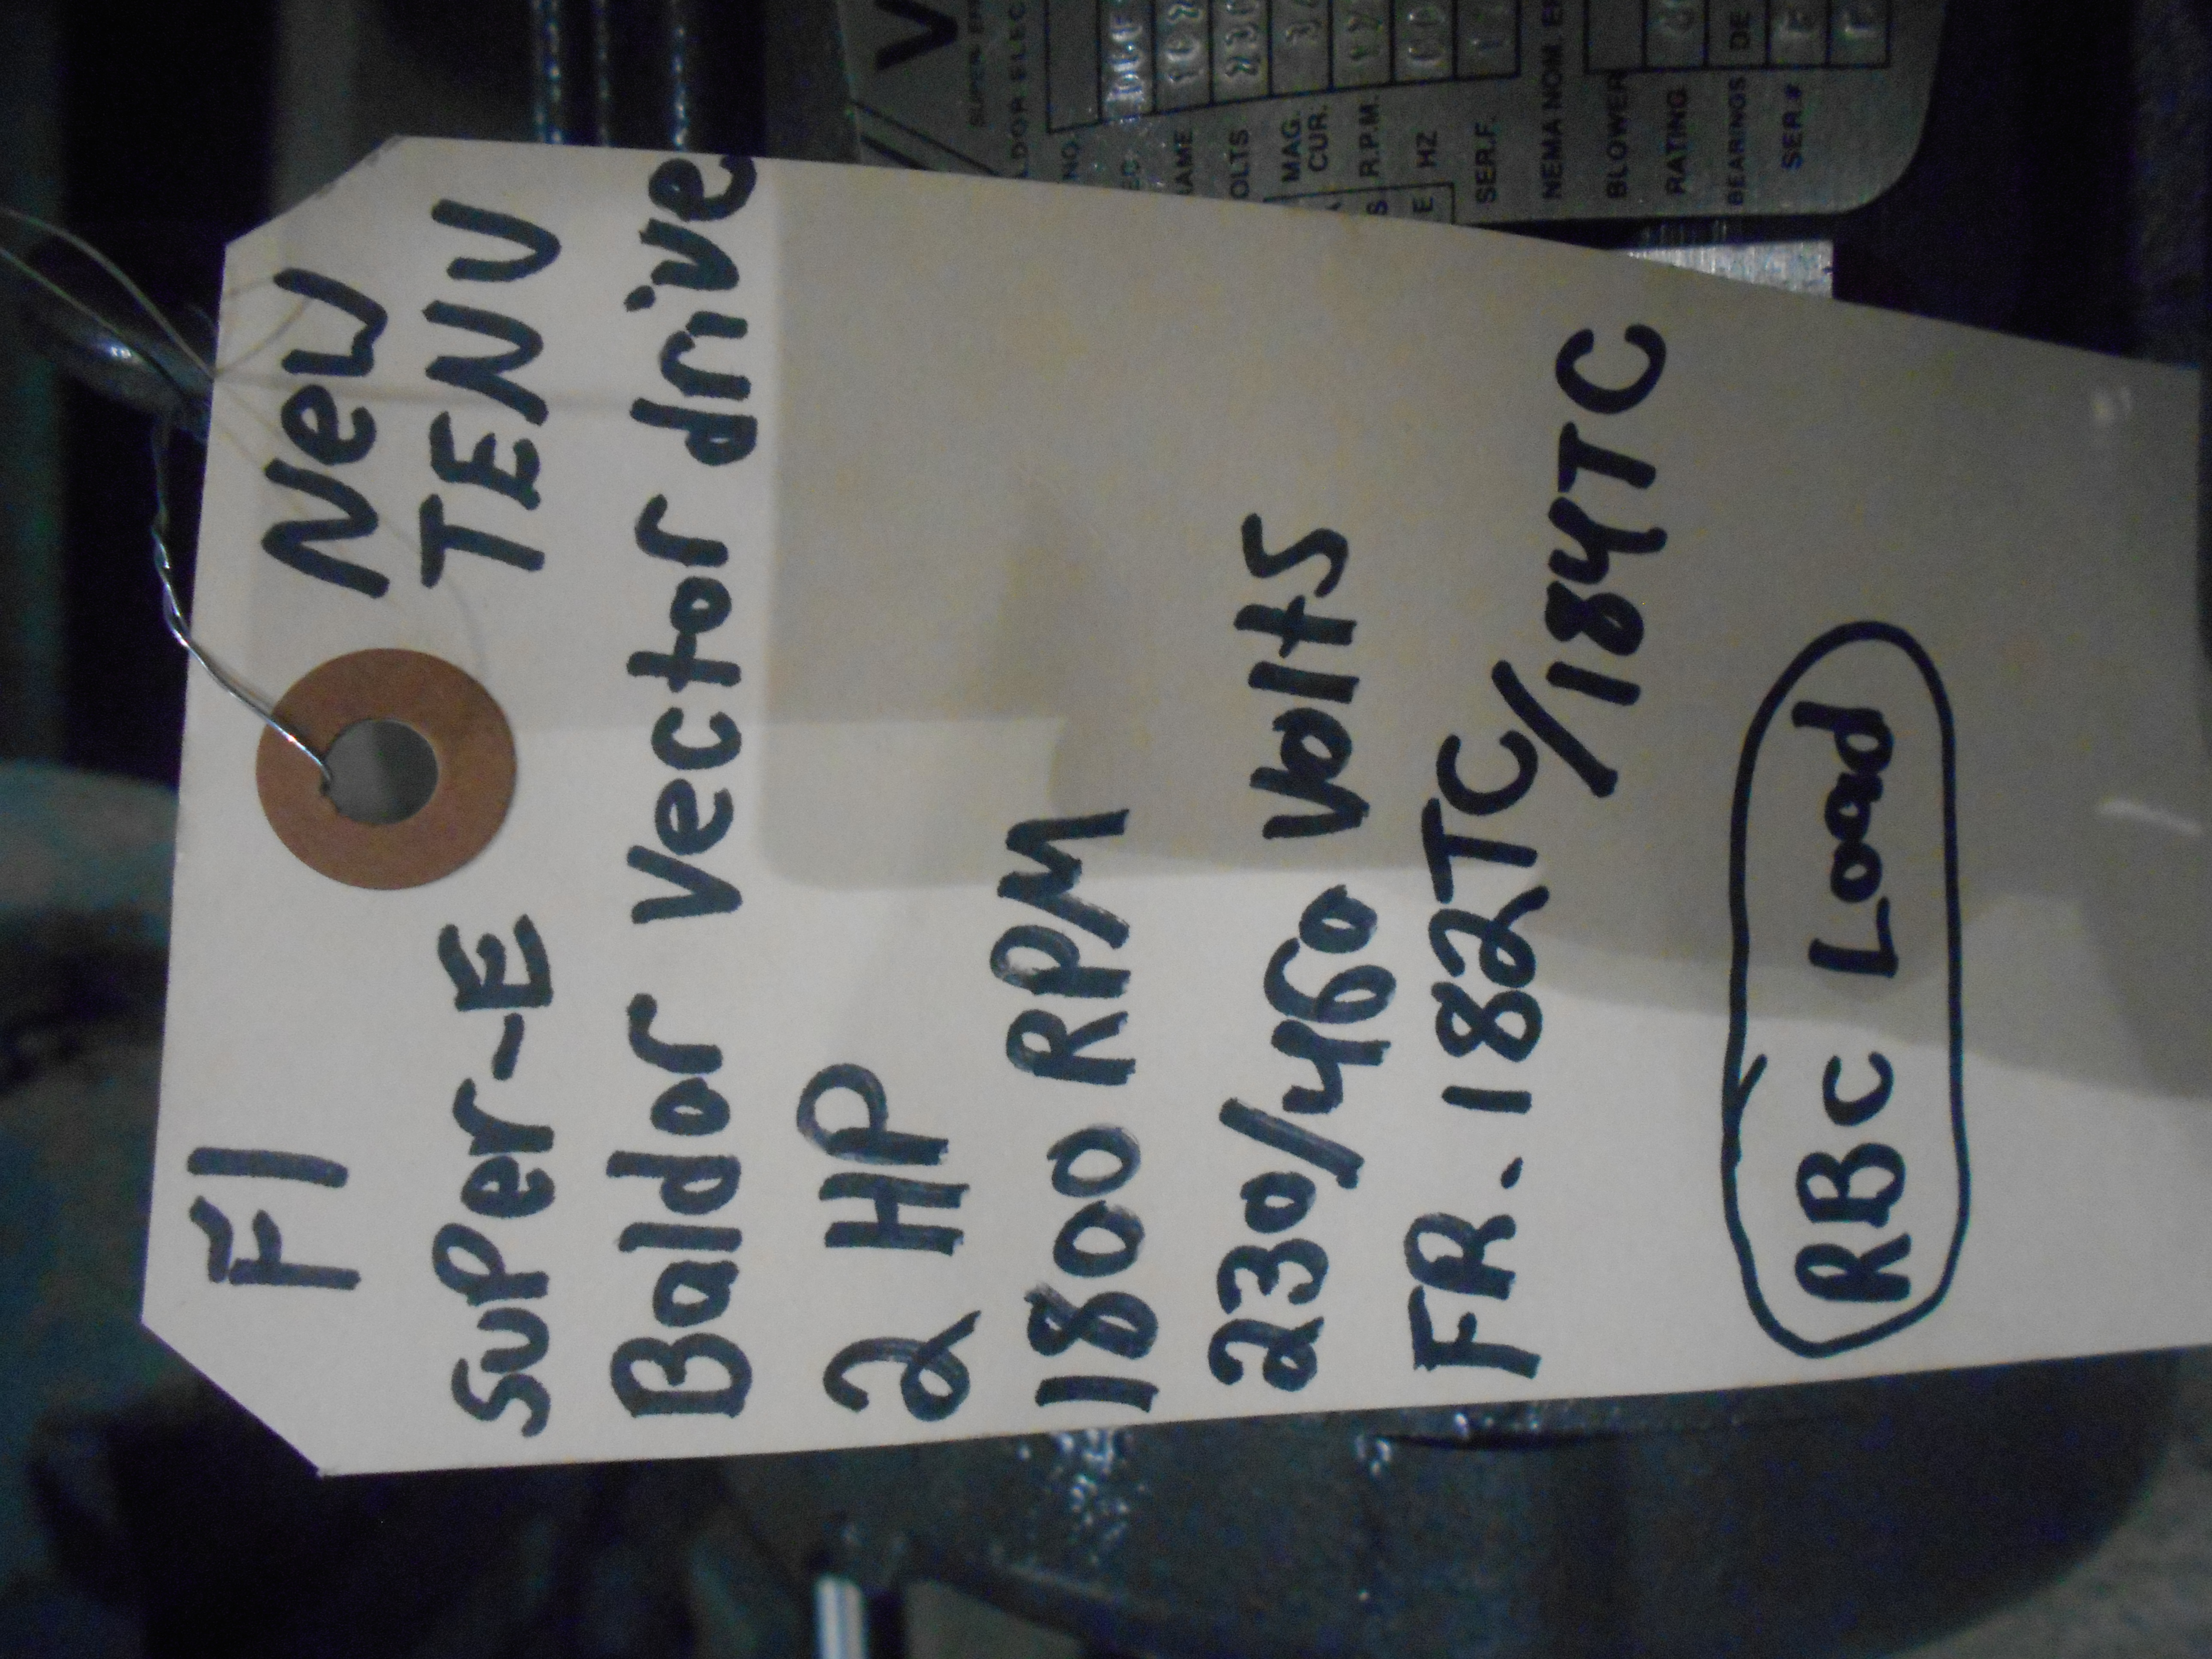 F1 New
SuPer-E TENV
Baldor Vector drive
2 HP
1800 RPM
230/460 Volts
FR. 182TC/184TC
RBC Load
V
SUPER
LDOR ELEC
NO.
EC
AME
OLTS
MAG.
CUR.
R.P.M.
HZ
SER.F.
NEMA NOM. EF
BLOWER
RATING
BEARINGS DE
SER.#